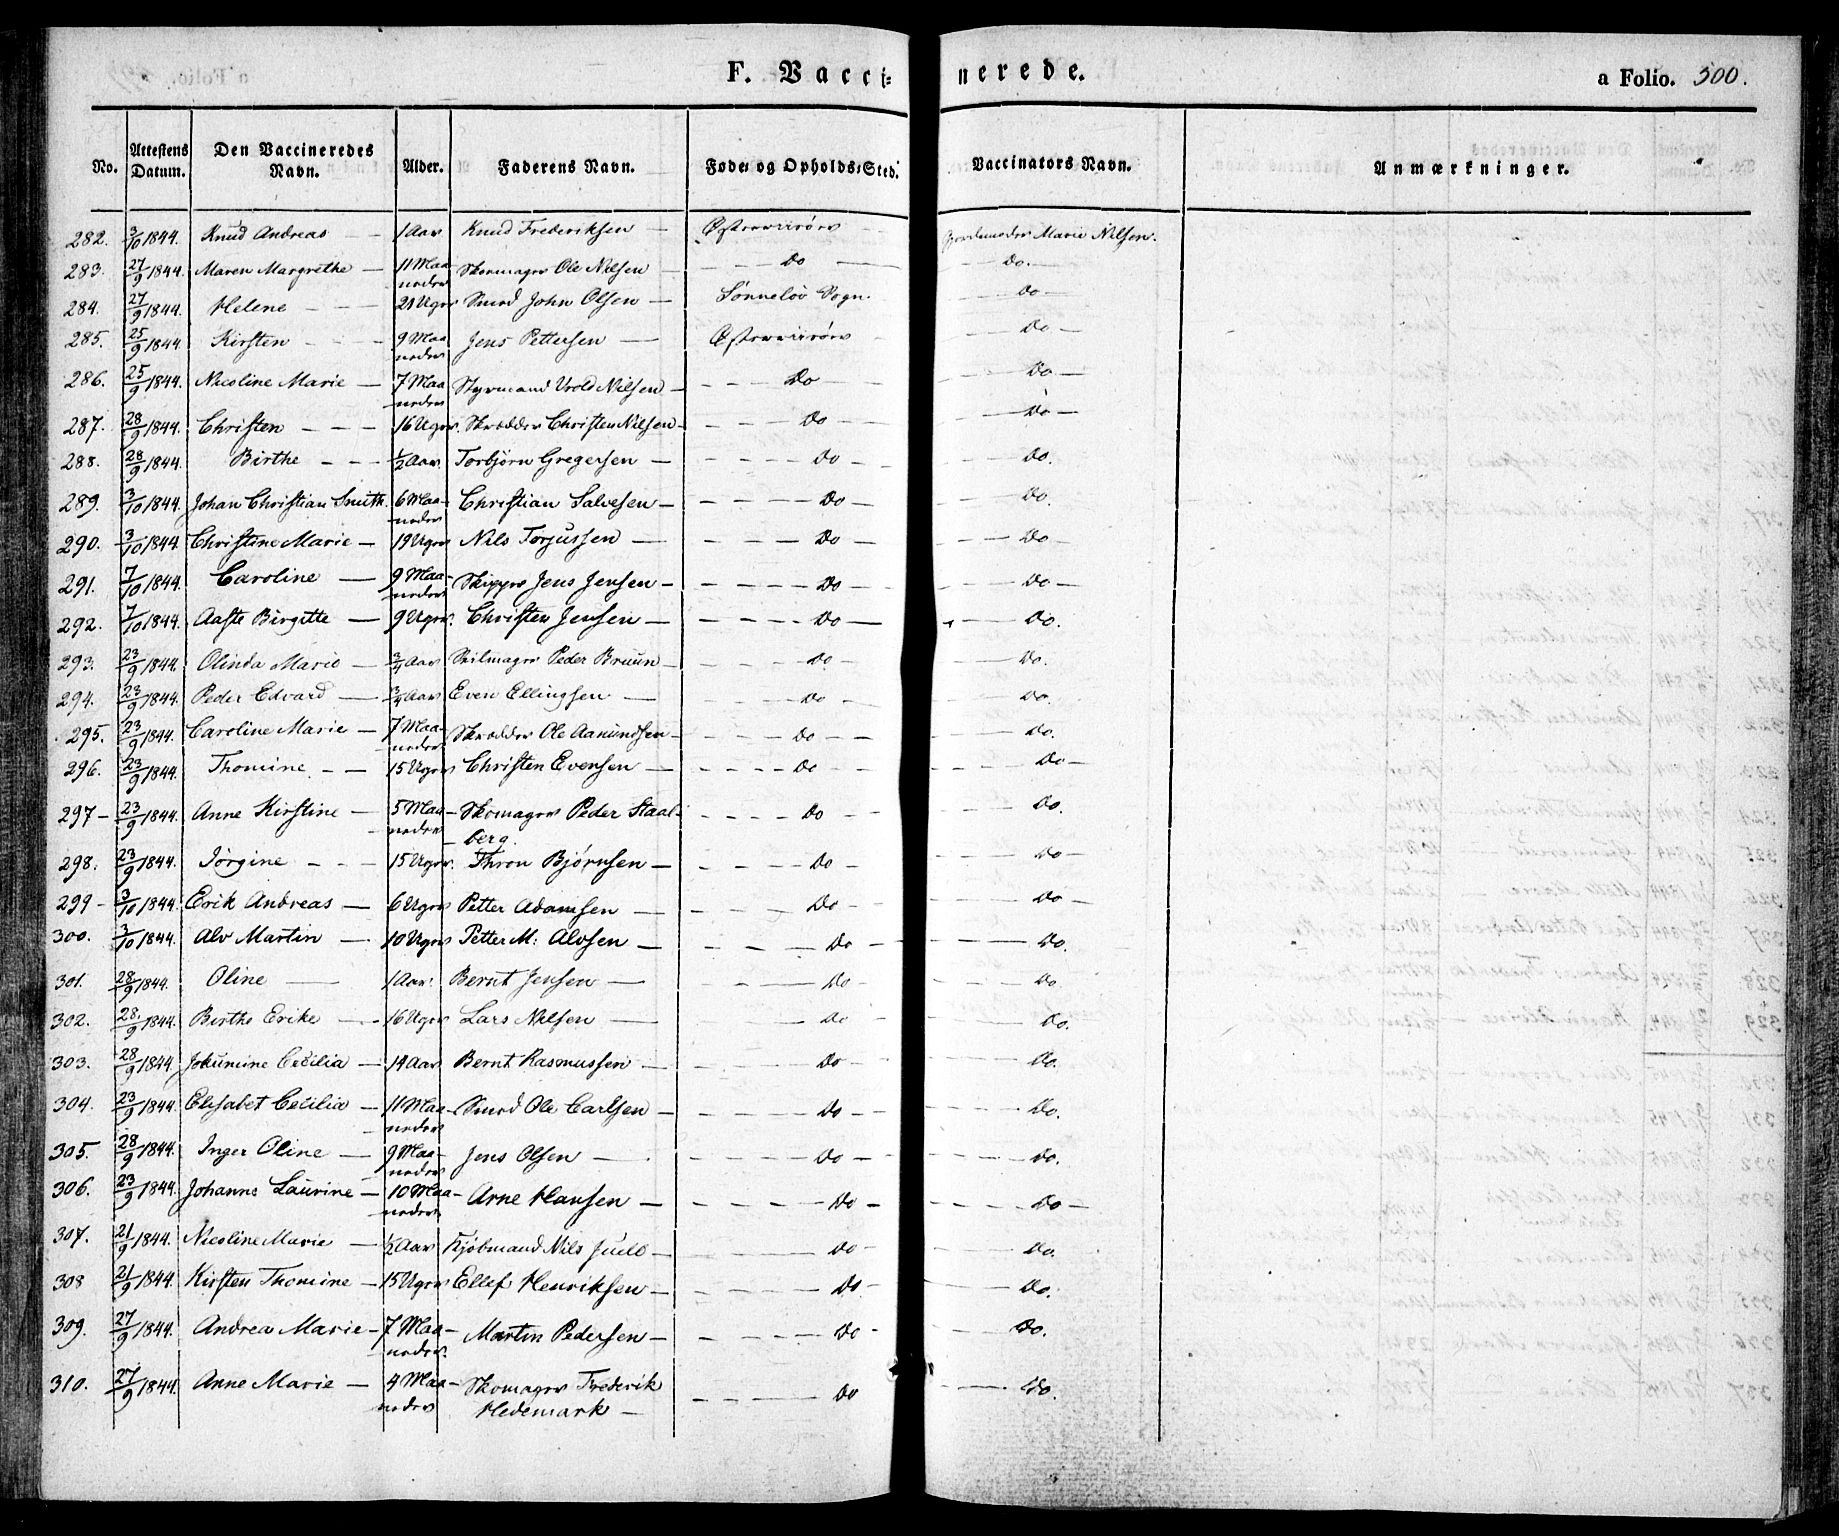 F. Vacci=nerede.
a Folio. 300.
No. Attestens Datum. Den Vaccineredes Navn. Alder. Faderens Navn. Føde= og Opholds=Sted. Vaccinators Navn. Anmærkninger.
282. 3/10 1844. Knud Andreas — 1 Aar Knud Frederiksen — Østerriisøer Gjordemoder Marie Nilsen.
283. 27/9 1844. Maren Margrethe — 11 Maaneder Skomager Ole Nilsen — Do — Do.
284. 27/9 1844. Helene — 21 Uger Smed John Olsen — Sønneløv Sogn. — Do —
285. 25/9 1844. Kirsten — 9 Maaneder Jens Pettersen — Østerriisøer — Do —
286. 25/9 1844. Nicoline Marie — 7 Maaneder Styrmand Vrold Nilsen — Do — Do —
287. 28/9 1844. Christen — 16 Uger. Skrædder Christen Nilsen — Do — Do —
288. 28/9 1844. Birthe — 1/2 Aar. Torbjørn Gregersen — Do — Do.
289. 3/10 1844. Johan Christian Smith. 6 Maaneder Christian Salvesen — Do — Do.
290. 3/10 1844. Christine Marie — 19 Uger Nils Torjussen — Do — Do —
291. 7/10 1844. Caroline — 9 Maaneder Skipper Jens Jensen — Do — Do —
292. 7/10 1844. Aaste Birgitte — 9 Uger. Christen Jensen — Do — Do.
293. 23/9 1844. Olinda Marie — 3/4 Aar Seilmager Peder Bruun — Do — Do.
294. 23/9 1844. Peder Edvard — 3/4 Aar Even Ellingsen — Do — Do.
295. 23/9 1844. Caroline Marie — 7 Maaneder Skrædder Ole Aanundsen — Do — Do.
296. 23/9 1844. Thomine — 15 Uger Christen Evensen — Do — Do —
297 — 23/9 1844. Anne Kirstine — 5 Maaneder Skomager Peder Staalberg. — Do — Do.
298. 23/9 1844. Jørgine — 15 Uger. Thron Bjørnsen — Do — Do —
299 — 3/10 1844. Erik Andreas — 6 Uger Petter Adamsen — Do — Do —
300. 3/10 1844. Alv Martin — 10 Uger Petter M: Alvsen — Do — Do.
301. 28/9 1844. Oline — 1 Aar. Bernt Jensen — Do — Do.
302. 28/9 1844. Birthe Erike — 16 Uger Lars Nilsen — Do — Do.
303. 28/9 1844. Jokumine Cecilia — 14 Aar Bernt Rasmussen — Do — Do.
304. 23/9 1844. Elisabet Cecilia — 11 Maaneder Smed Ole Carlsen — Do — Do.
305. 28/9 1844. Inger Oline — 9 Maaneder Jens Olsen — Do — Do.
306. 23/9 1844. Johanne Laurine — 10 Maaneder Arne Hansen — Do — Do —
307. 21/9 1844. Nicoline Marie — 1/2 Aar Kjøbmand Nils Juell — Do — Do.
308 21/9 1844. Kirsten Thomine — 15 Uger Ellef Henriksen — Do — Do.
309. 27/9 1844. Andrea Marie — 7 Maaneder. Martin Pedersen — Do — Do.
310. 27/9 1844. Anne Marie — 4 Maaneder Skomager Frederik Hedemark — Do — Do.